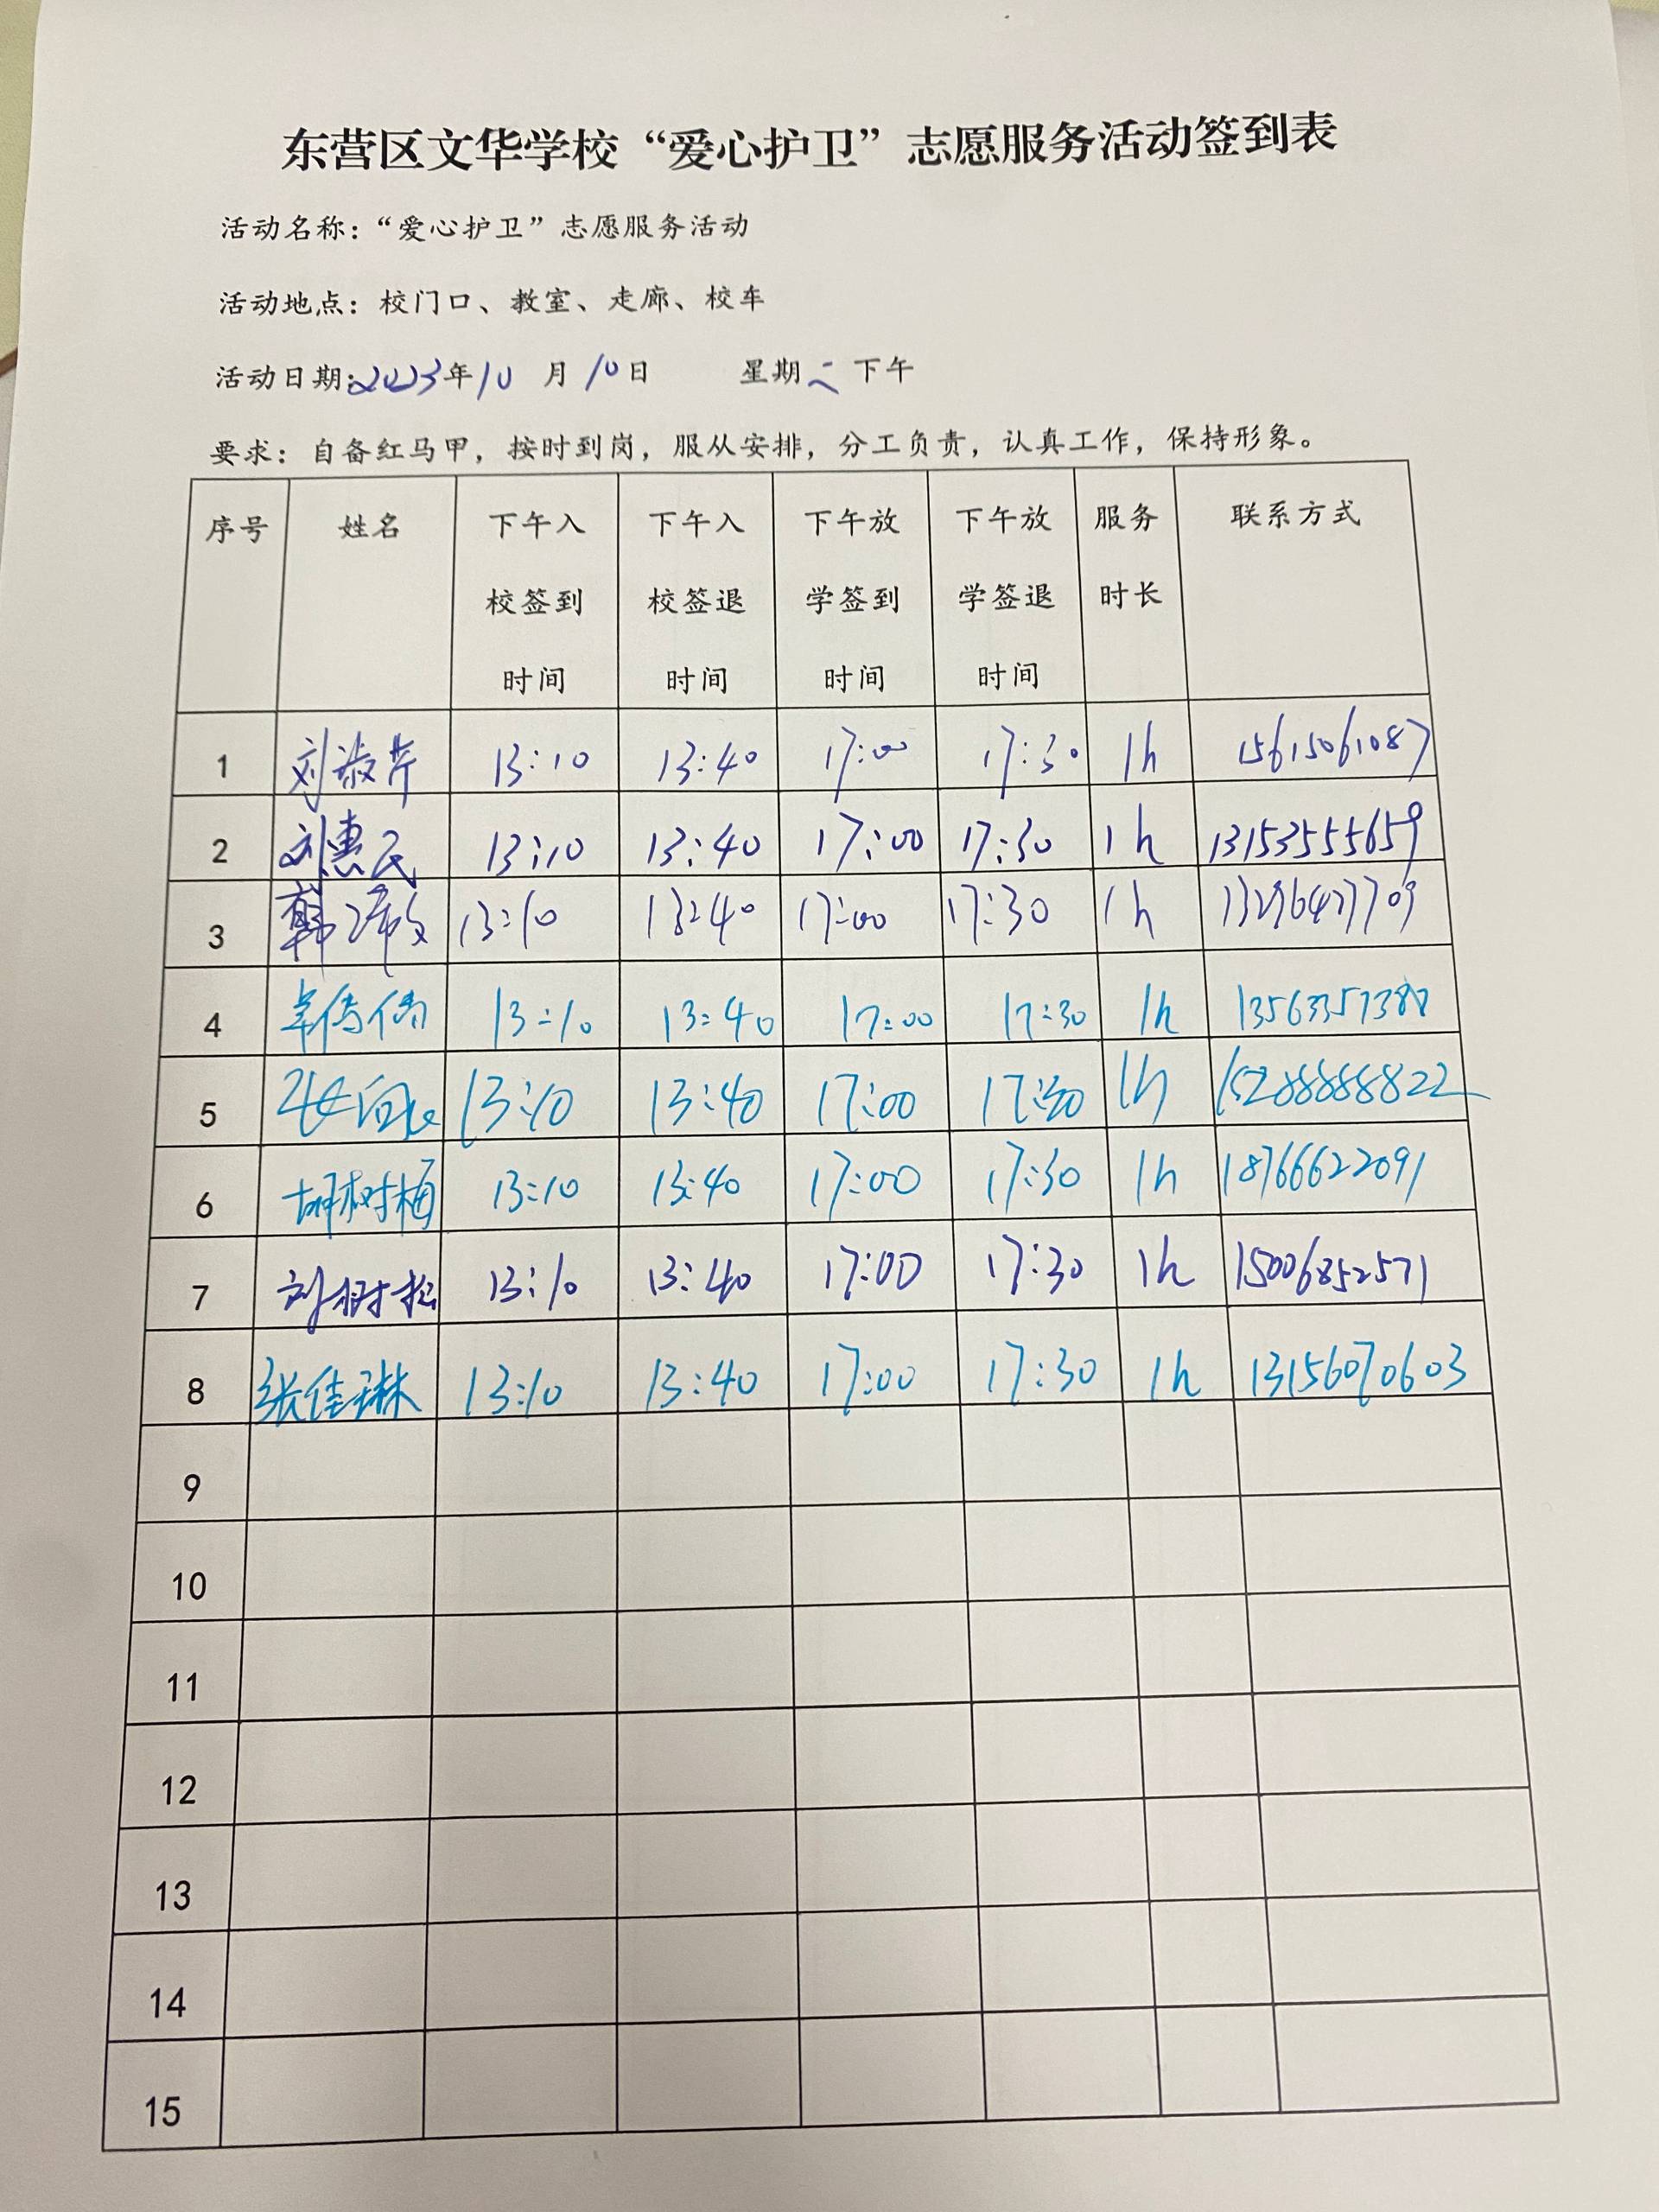 东营区文华学校“爱心护卫”志愿服务活动签到表
活动名称：“爱心护卫”志愿服务活动
活动地点：校门口、教室、走廊、校车
活动日期：2023年10月10日 星期二 下午
要求：自备红马甲，按时到岗，服从安排，分工负责，认真工作，保持形象。
序号 姓名 下午入校签到时间 下午入校签退时间 下午放学签到时间 下午放学签退时间 服务时长 联系方式
1 刘淑芹 13:10 13:40 17:00 17:30 1h 15615061087
2 刘惠民 13:10 13:40 17:00 17:30 1h 13153555659
3 韩 13:10 13:40 17:00 17:30 1h
4 13:10 13:40 17:00 17:30 1h
5 13:10 13:40 17:00 17:30 1h 15288888822
6 胡树梅 13:10 13:40 17:00 17:30 1h 18766622091
7 刘树松 13:10 13:40 17:00 17:30 1h 15006852571
8 张佳琳 13:10 13:40 17:00 17:30 1h 13156070603
9
10
11
12
13
14
15